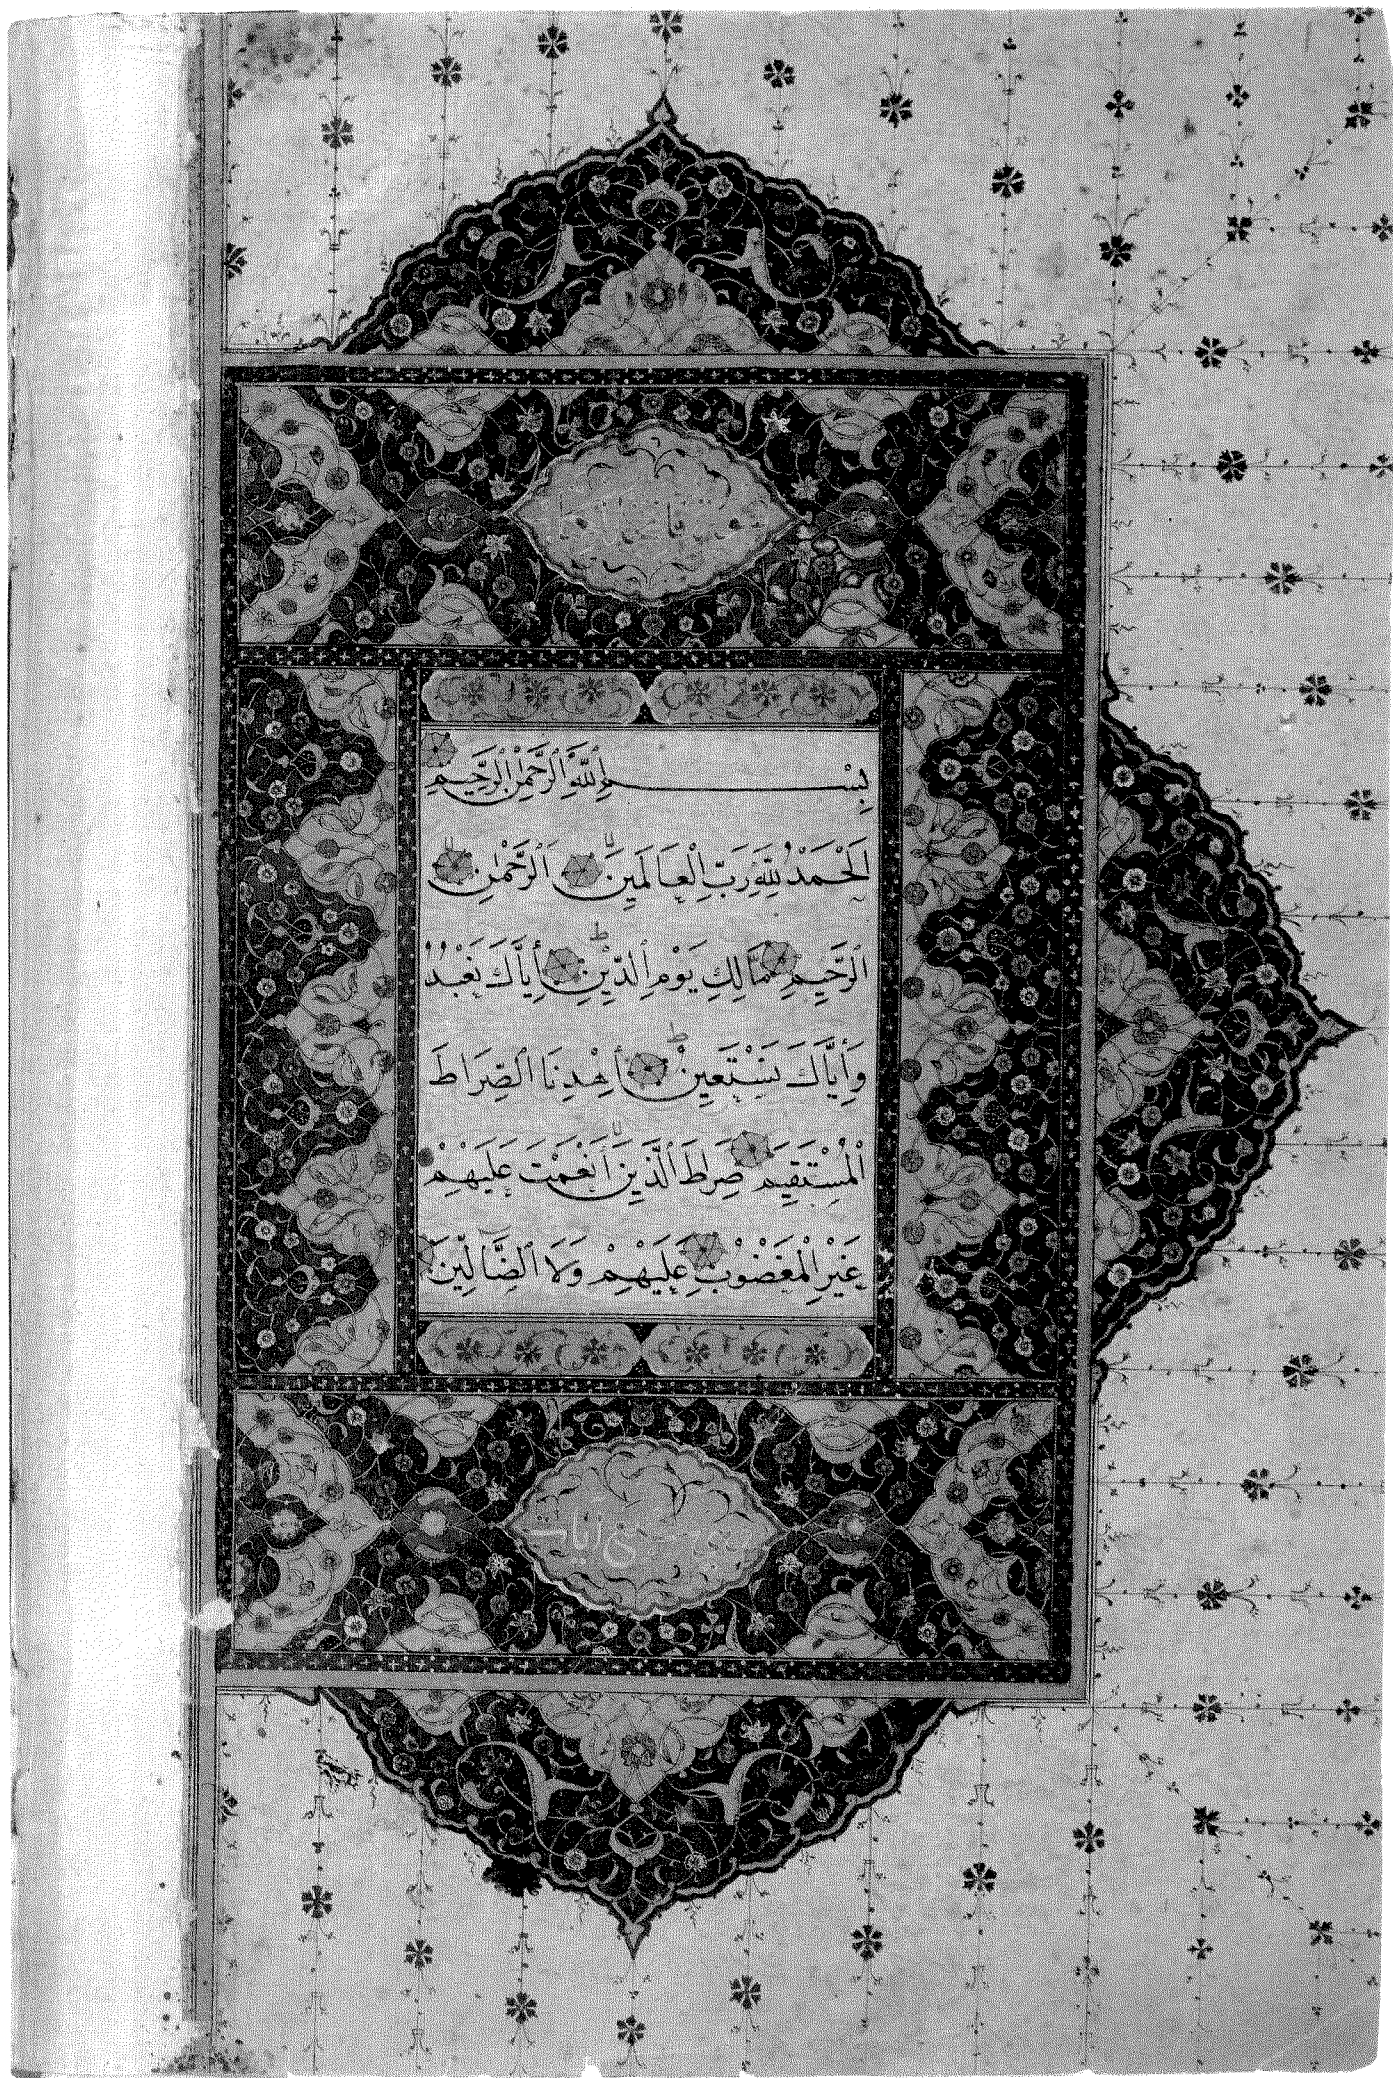 بِسْمِ اللّٰهِ الرَّحْمٰنِ الرَّحِيمِ
اَلْحَمْدُ لِلّٰهِ رَبِّ الْعَالَمِينَ الرَّحْمٰنِ
الرَّحِيمِ مَالِكِ يَوْمِ الدِّينِ إِيَّاكَ نَعْبُدُ
وَإِيَّاكَ نَسْتَعِينُ اِهْدِنَا الصِّرَاطَ
الْمُسْتَقِيمَ صِرَاطَ الَّذِينَ أَنْعَمْتَ عَلَيْهِمْ
غَيْرِ الْمَغْضُوبِ عَلَيْهِمْ وَلَا الضَّالِّينَ